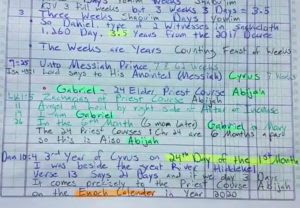 3 Three Weeks Shavu'im Days Yomim
So Daniel type Witnesses in Sackcloth
1,260 Day. 3.5 Years from the 2017
The Weeks are Years Counting Feast of Weeks
Unto Messiah Prince 7
Isa 45:1 Lord says to His Anointed (Messiah) Cyrus
Gabriel - 24 Elder, Priest Course Abijah
Zacharias of Priest Course Abijah
11 Angel Lord by right side Altar of Incense
19 I am Gabriel
26 In the 6th Month (6 mon Later) Gabriel to Mary
The 24 Priest Courses 1 Chr 24 are 6 Months apart
so this is Also Abijah
Dan 10:4 3rd Year of Cyrus on 24th Day of the 1st Month
I was beside the great River Hiddekel
Verse 13 Says 21 Days and
It comes precisely to the Priest Course Abijah
on the Enoch Calender in Year 2020